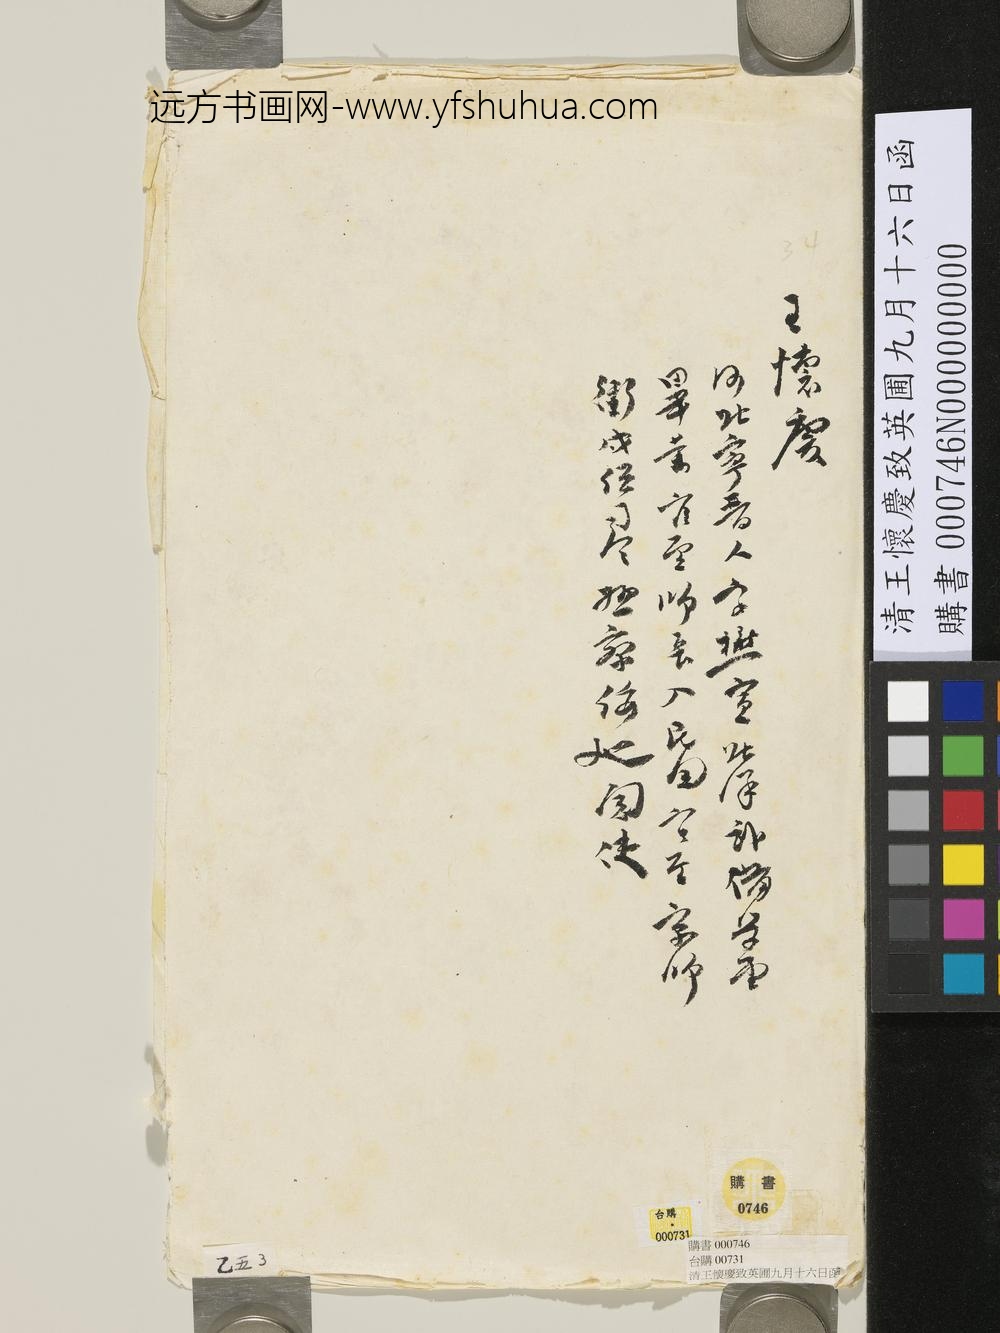 远方书画网-www.yfshuhua.com
34
王懷慶
河北寧晉人字懋宣北洋武備學堂
畢業官至師長入民國官至京師
衛戍總司令熱察綏巡閱使
清王懷慶致英圃九月十六日函
購書 000746N000000000
購書
0746
台購
000731
購書 000746
台購 00731
清王懷慶致英圃九月十六日函
乙五3